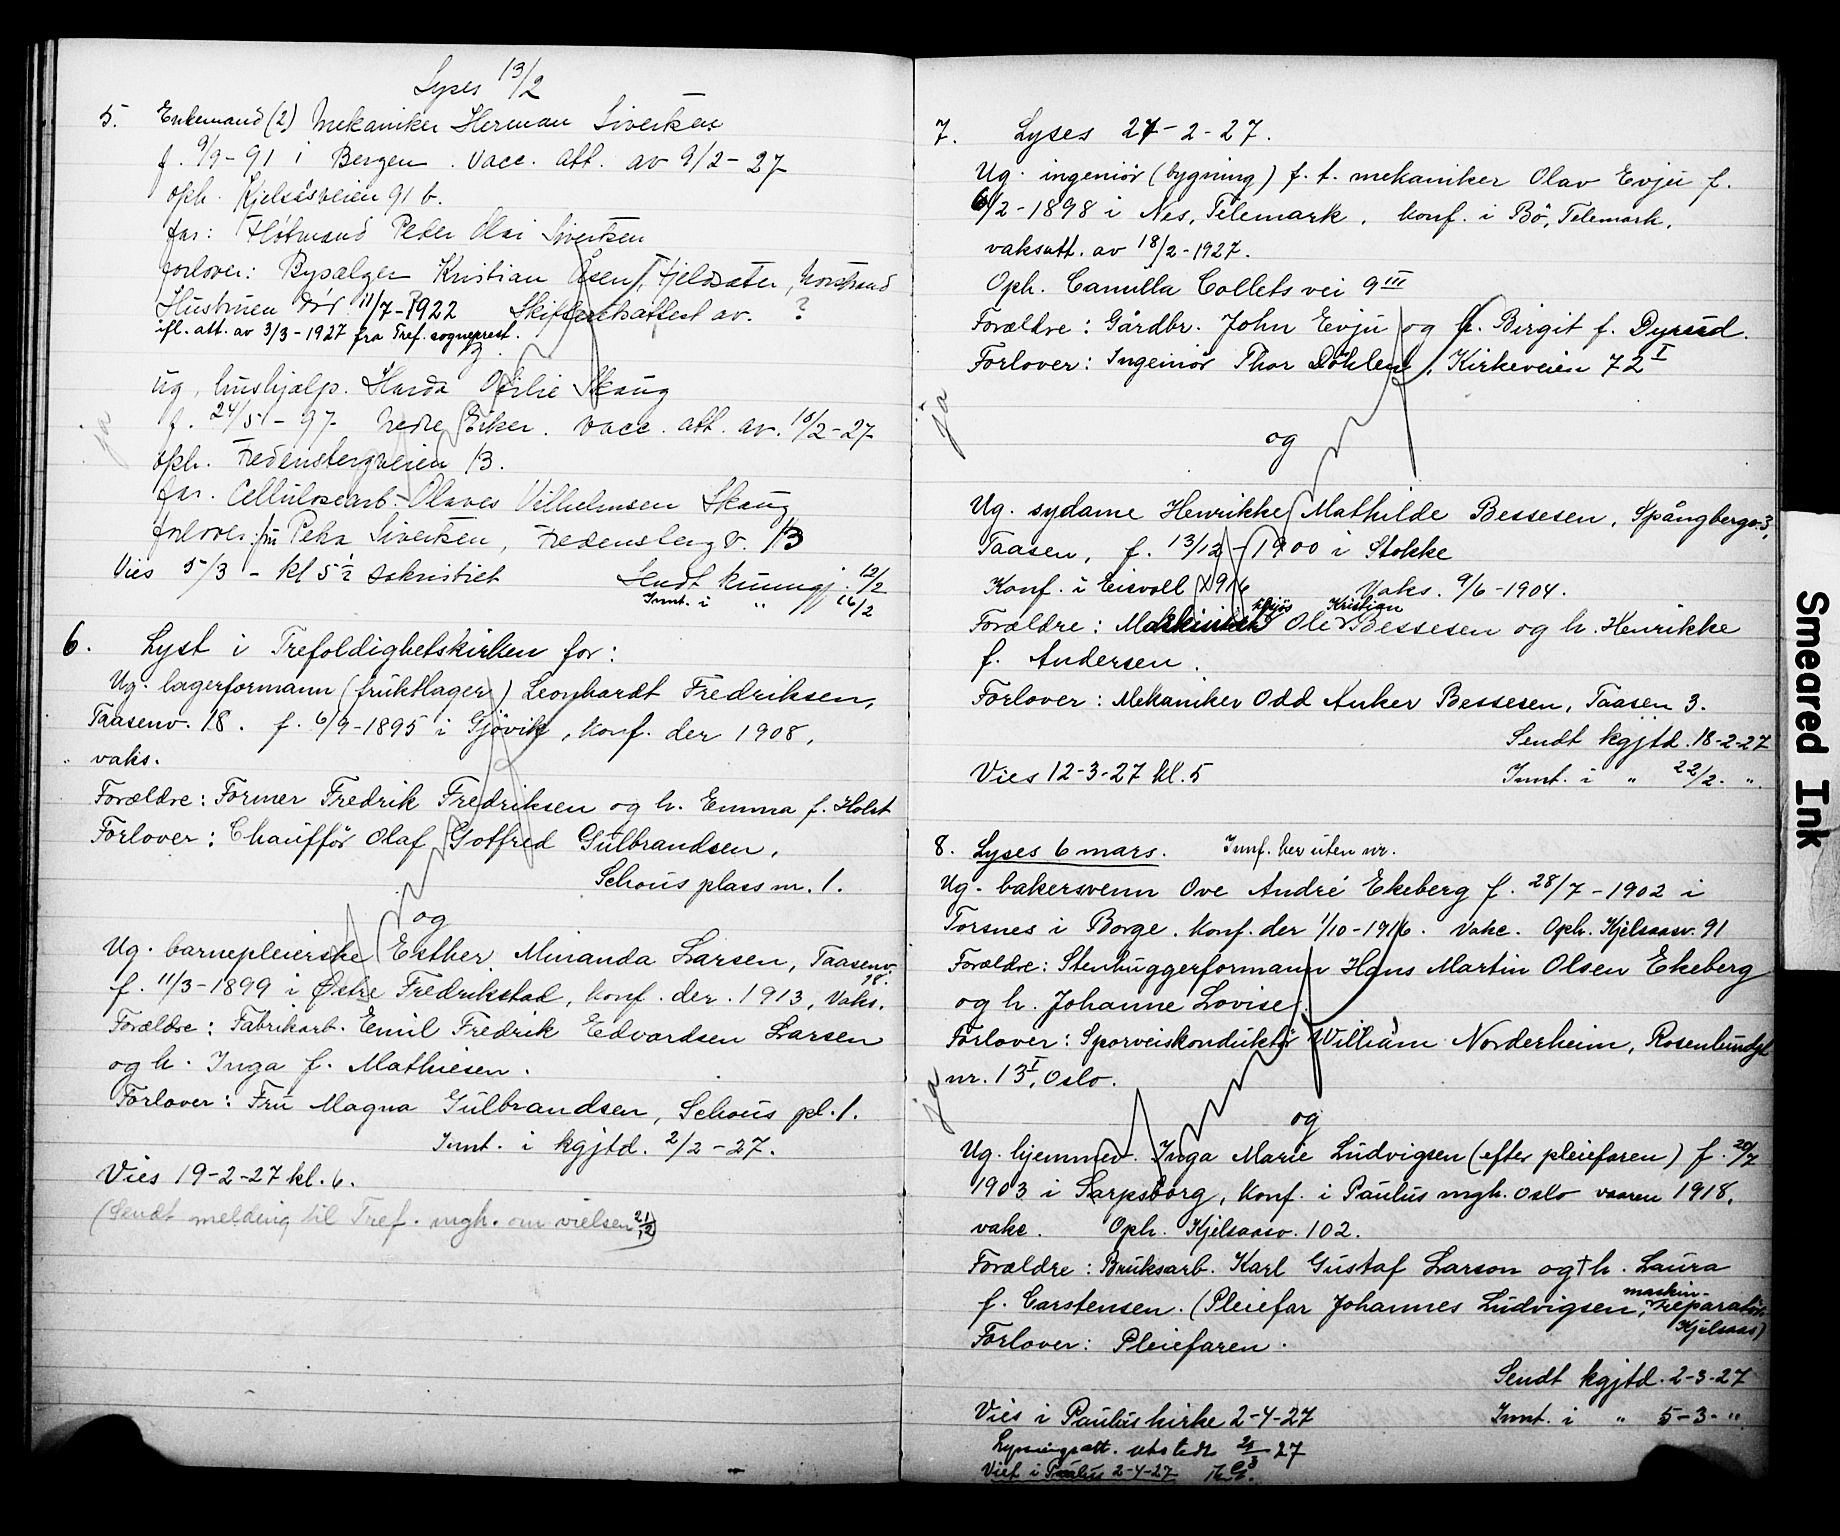 Lyses 13/2
5. Enkemand (2) Mekaniker Herman Sivertsen
f. 9/9-91 i Bergen. Vacc. att. av 9/2-27
oph. Kjelsåsveien 91 b.
far: Fløtmand Peder Olai Sivertsen
forlover: Bysælger Kristian Åsen, Fjeldsæter, Norstrand
Hustruen død 11/7-1922 Skifteretsattest av. ?
ifl. att. av 3/3-1927 fra Tref. sogneprest.
ug. hushjælp. Harda Otilie Skaug
ja
f. 24/5-97 Nedre Eiker. Vacc. att. av. 10/2-27
oph. Fredensborgveien 13.
far. Cellulosearb. Olaves Vilhelmsen Skaug
forlover: fru Petra Sivertsen, Fredensborgv. 13
Vies 5/3 - kl 5½ sakristiet Sendt kunngj. 12/2
Innt. i " 16/2
6. Lyst i Trefoldighetskirken for:
Ug. lagerformann (fruktlager) Leonhardt Fredriksen,
Taasenv. 18. f. 6/9-1895 i Gjövik, konf. der 1908,
vaks.
Forældre: Former Fredrik Fredriksen og h. Emma f. Holst
Forlover: Chaufför Olaf Gotfred Gulbrandsen,
Schous plass nr. 1.
og
Ug. barnepleierske Esther Miranda Larsen, Taasenv. 18.
f. 11/3-1899 i Østre Fredrikstad, konf. der. 1913, Vaks.
Forældre: Fabrikarb. Emil Fredrik Edvardsen Larsen
og h. Inga f. Mathiesen.
Forlover: Fru Magna Gulbrandsen, Schous pl. 1.
Innt. i kgjtd. 2/2-27.
Vies 19-2-27 kl. 6.
(Sendt melding til Tref. mgh. om vielsen 21/2)
7. Lyses 27-2-27.
Ug. ingeniör (bygning) f. t. mekaniker Olav Evju f.
6/2-1898 i Nes, Telemark. konf. i Bö, Telemark.
vaksatt. av 18/2-1927.
Oph. Camilla Collets vei 9 III
Forældre: Gårdbr. John Evju og h. Birgit f. Dyrud.
Forlover: Ingeniör Thor Döhlen, Kirkeveien 72 I
ja
og
Ug. sydame Henrikke Mathilde Bessesen, Spångbergv. 3,
Taasen, f. 13/12-1900 i Stokke
Konf. i Eisvoll 1916 Vaks. 9/6-1904.
Forældre: Ole Kristian Bessesen og h. Henrikke
f. Andersen.
Forlover: Mekaniker Odd Anker Bessesen, Taasen 3.
Sendt kgjtd. 18-2-27
Vies 12-3-27 kl. 5 Innt. i " 22/2. "
8. Lyses 6 mars. Innf. her uten nr.
Ug. bakersvenn Ove André Ekeberg f. 28/7-1902 i
Torsnes i Borge. Konf. der 1/10-1916. Vakc. Oph. Kjelsaasv. 91
Forældre: Stenhuggerformann Hans Martin Olsen Ekeberg
og h. Johanne Lovise.
Forlover: Sporveiskonduktör William Norderheim, Rosenlundgt
nr. 13 I, Oslo.
ja
og
Ug. hjemmev. Inga Marie Ludvigsen (efter pleiefaren) f. 20/7
1903 i Sarpsborg, konf. i Paulus mgh. Oslo vaaren 1918,
vakc. Oph. Kjelsaasv. 102.
Forældre: Bruksarb. Karl Gustaf Larson og † h. Laura
f. Carstensen. (Pleiefar Johannes Ludvigsen, maskin-
reparatör Kjelsaas)
Forlover: Pleiefaren.
Sendt kgjtd. 2-3-27
Vies i Paulus kirke 2-4-27 Innt. i " 5-3- "
Lysningsatt. utstedt 21/3 27
Viet i Paulus 2-4-27
Smeared Ink